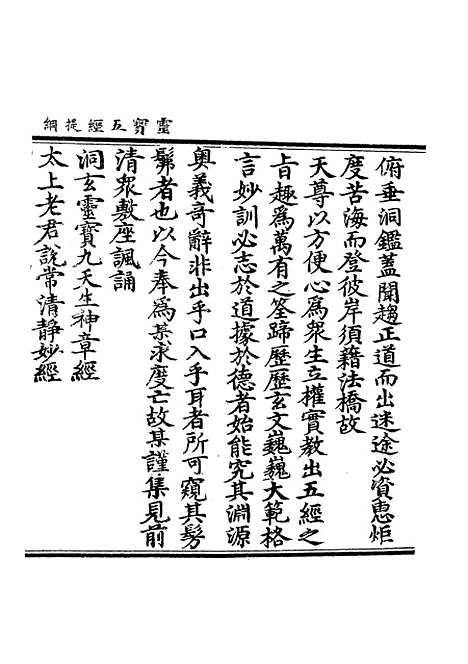 靈寶五經提綱
俯垂洞鑑蓋聞趨正道而出迷途必資惠炬
度苦海而登彼岸須籍法橋故
天尊以方便心為眾生立權實教出五經之
旨趣為萬有之筌蹄歷歷玄文巍巍大範格
言妙訓必志於道據於德者始能究其淵源
奧義奇辭非出乎口入乎耳者所可窺其髣
髴者也以今奉為某求度亡故某謹集見前
清眾敷座諷誦
洞玄靈寶九天生神章經
太上老君說常清靜妙經